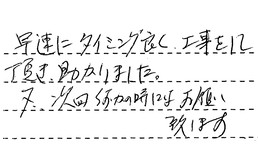 早速に タイミング良く 工事をして
頂き 助かりました。
又、次回 の時にも お願い
致します